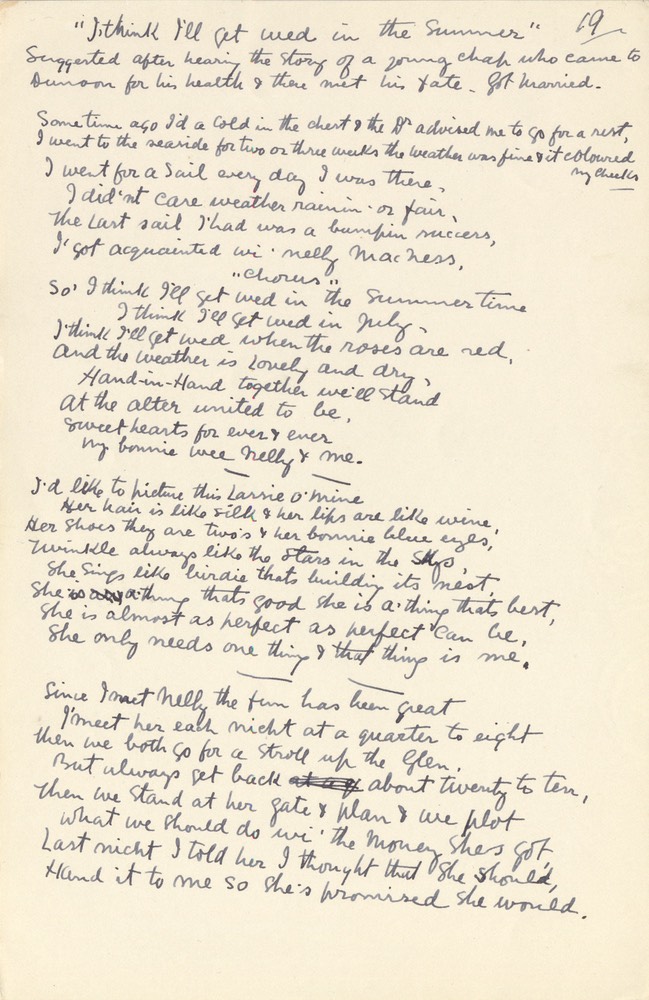 "I think I'll get wed in the Summer" 19
Suggested after hearing the story of a young chap who came to
Dunoon for his health & there met his fate - Got Married.
Sometime ago I'd a cold in the chest & the Dr advised me to go for a rest,
I went to the seaside for two or three weeks the weather was fine & it coloured
my cheeks
I went for a Sail every day I was there,
I did'nt care weather rainin' or fair,
The Last sail I had was a bumpin success,
I got acquainted wi' nelly MacNess,
"Chorus"
So' I think I'll get wed in the Summer time
I think I'll get wed in July,
I think I'll get wed when the roses are red,
And the weather is Lovely and dry,
Hand-in-Hand together we'll stand
At the alter united to be,
Sweethearts for ever & ever
my bonnie wee Nelly & me.
I'd like to picture this Lassie o' mine
Her hair is like silk & her lips are like wine,
Her shoes they are two's & her bonnie blue eyes,
Twinkle always like the stars in the
She Sings like birdie thats building its nest,
She is a' thing thats good she is a' thing thats best,
She is almost as perfect as perfect can be,
She only needs one thing & that thing is me.
Since I met Nelly the fun has been great
I meet her each nicht at a quarter to eight
Then we both go for a stroll up the Glen,
But always get back about twenty to ten,
Then we stand at her gate & plan & we plot
What we should do wi' the money she's got
Last nicht I told her I thought that she should,
Hand it to me so she's promised she would.